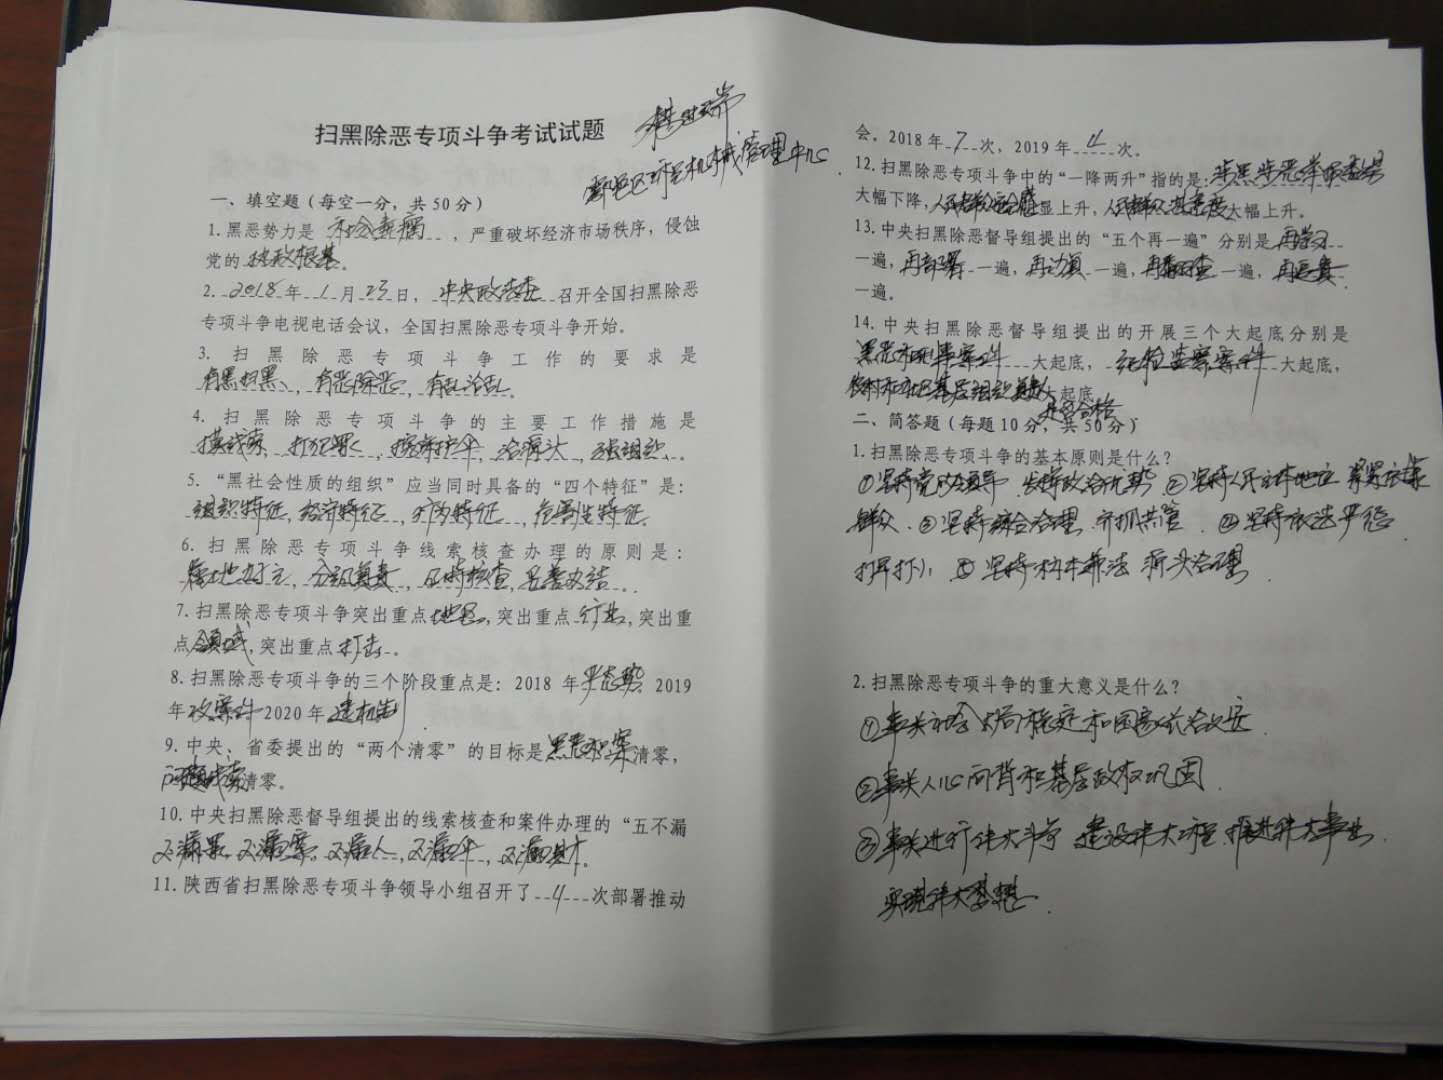 扫黑除恶专项斗争考试试题
鄠邑区环卫机械管理中心
一、填空题（每空一分，共50分）
1.黑恶势力是 社会毒瘤 ，严重破坏经济市场秩序，侵蚀
党的 执政根基 。
2. 2018 年 1 月 23 日， 中央政法委 召开全国扫黑除恶
专项斗争电视电话会议，全国扫黑除恶专项斗争开始。
3.扫黑除恶专项斗争工作的要求是
有黑扫黑、有恶除恶、有乱治乱。
4.扫黑除恶专项斗争的主要工作措施是
摸线索、打犯罪、挖保护伞、治源头、强组织。
5.“黑社会性质的组织”应当同时具备的“四个特征”是：
组织特征，经济特征，行为特征，危害性特征。
6.扫黑除恶专项斗争线索核查办理的原则是：
属地为主，分级负责，及时核查，妥善办结。
7.扫黑除恶专项斗争突出重点 地区，突出重点 行业，突出重
点 领域，突出重点 打击 。
8.扫黑除恶专项斗争的三个阶段重点是：2018 年 半态势 2019
年 攻案件 2020 年 建机制 .
9.中央、省委提出的“两个清零”的目标是 黑恶积案 清零，
问题线索 清零。
10.中央扫黑除恶督导组提出的线索核查和案件办理的“五不漏
不漏黑，不漏案，不漏人，不漏伞，不漏财。
11.陕西省扫黑除恶专项斗争领导小组召开了 4 次部署推动
会。2018 年 7 次，2019 年 4 次。
12.扫黑除恶专项斗争中的“一降两升”指的是：涉黑涉恶举报数量
大幅下降，人民群众安全感 显上升，人民群众满意度 大幅上升。
13.中央扫黑除恶督导组提出的“五个再一遍”分别是 再学习
一遍，再部署 一遍，再动员 一遍，再排查 一遍，
一遍。
14.中央扫黑除恶督导组提出的开展三个大起底分别是
黑恶和刑事案件 大起底， 纪检监察案件 大起底，
农村和社区基层组织 大起底
二、简答题（每题10分，共50分）
1.扫黑除恶专项斗争的基本原则是什么？
①坚持党的领导 发挥政治优势 ②坚持人民主体地位 紧紧依靠
群众. ③坚持综合治理 齐抓共管. ④坚持依法严惩.
打早打小. ⑤坚持标本兼治 源头治理.
2.扫黑除恶专项斗争的重大意义是什么？
①事关社会大局稳定和国家长治久安.
②事关人心向背和基层政权巩固.
③事关进行伟大斗争 建设伟大工程 推进伟大事业.
实现伟大梦想.